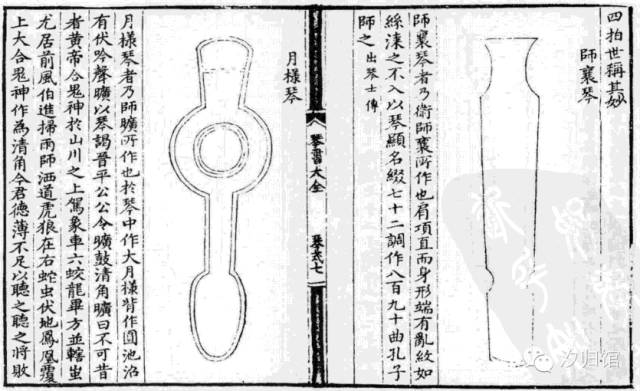 四拍世稱其妙
師襄琴
師襄琴者乃衛師襄所作也肩項直而身形端有亂紋如
絲漆之不入以琴顯名綴七十二調作八百九十曲孔子
師之出琴士傳
琴書大全
月樣琴
月樣琴者乃師曠所作也於琴中作大月樣背作圓池沼
有伏吟聲曠以琴謁晉平公公令曠鼓清角曠曰不可昔
者黄帝合鬼神於山川之上駕象車六蛟龍畢方並轄蚩
尤居前風伯進掃雨師洒道虎狼在右蛇虫伏地鳳凰覆
上大合鬼神作為清角今君德薄不足以聽之聽之將敗
汐归馆